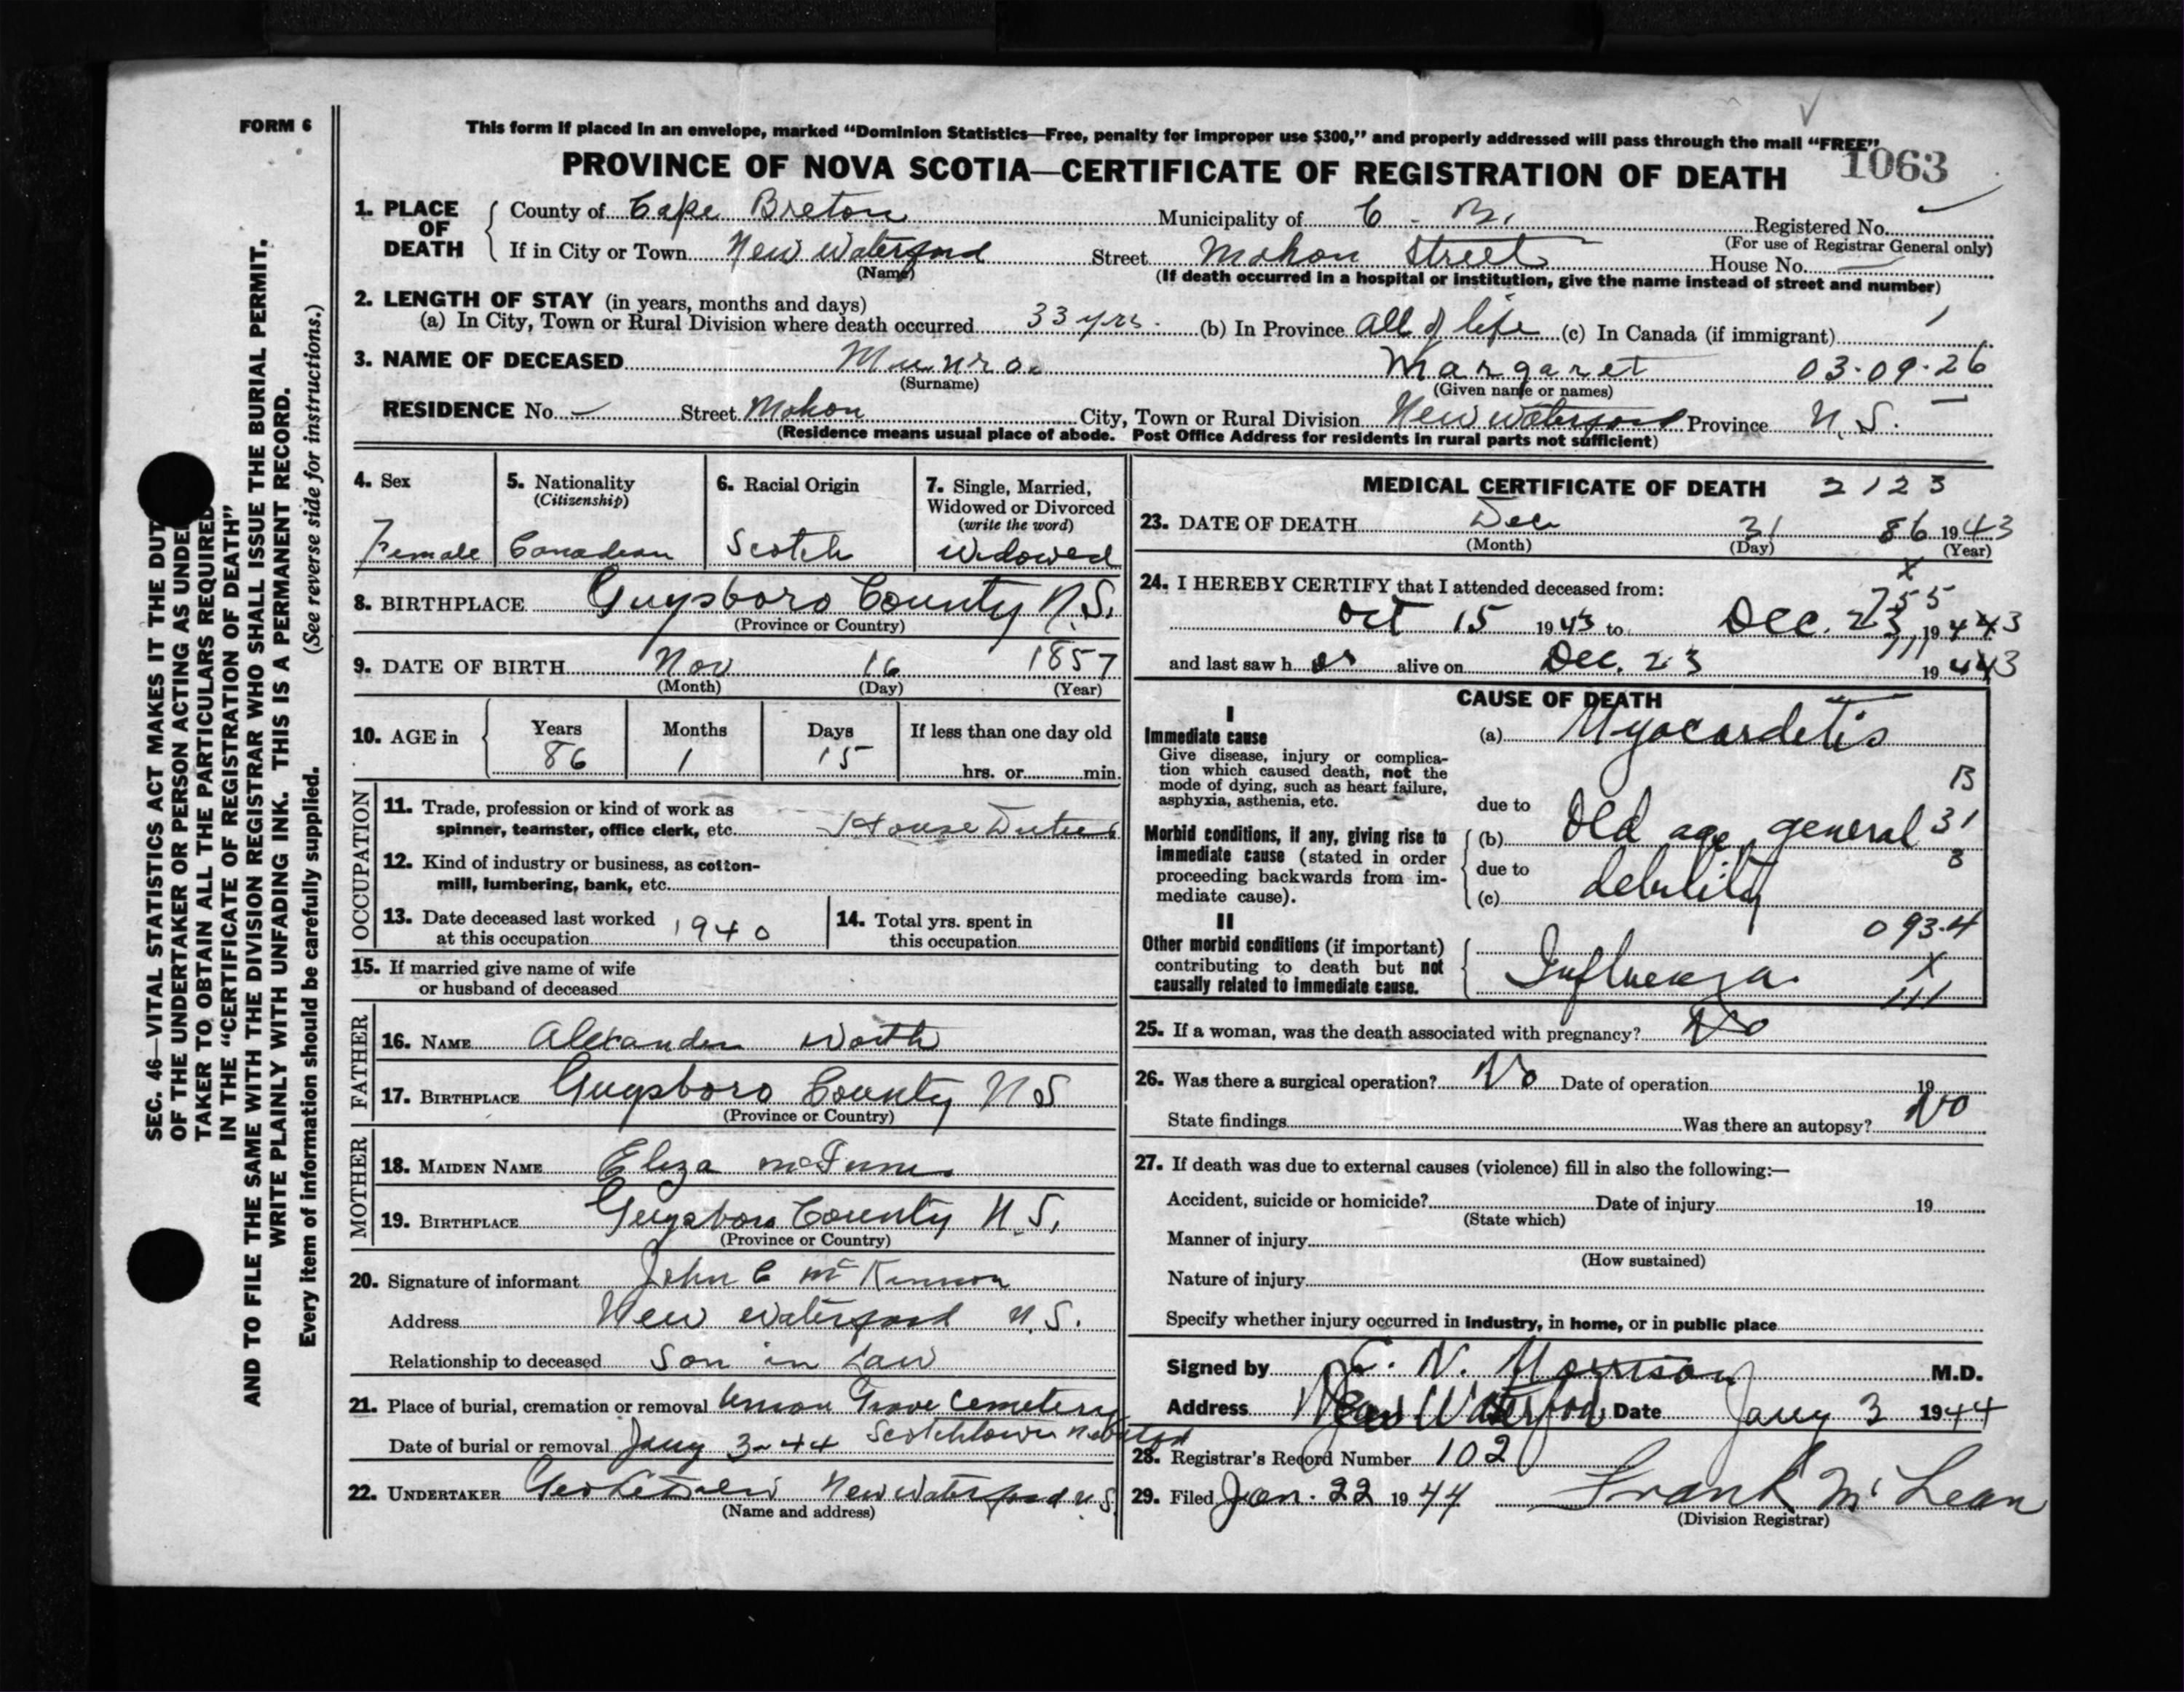 FORM 6
This form if placed in an envelope, marked “Dominion Statistics—Free, penalty for improper use $300,” and properly addressed will pass through the mail “FREE”
PROVINCE OF NOVA SCOTIA—CERTIFICATE OF REGISTRATION OF DEATH 1063
1. PLACE OF DEATH
County of Cape Breton Municipality of C. B. Registered No.
(For use of Registrar General only)
If in City or Town New Waterford Street Mahon Street House No.
(Name)
(If death occurred in a hospital or institution, give the name instead of street and number)
2. LENGTH OF STAY (in years, months and days)
(a) In City, Town or Rural Division where death occurred 33 yrs. (b) In Province all of life (c) In Canada (if immigrant)
3. NAME OF DECEASED Munro Margaret 03-09-26
(Surname) (Given name or names)
RESIDENCE No. Street Mahon City, Town or Rural Division New Waterford Province N.S.
(Residence means usual place of abode. Post Office Address for residents in rural parts not sufficient)
4. Sex
Female
5. Nationality
(Citizenship)
Canadian
6. Racial Origin
Scotch
7. Single, Married, Widowed or Divorced
(write the word)
Widowed
8. BIRTHPLACE Guysboro County N.S.
(Province or Country)
9. DATE OF BIRTH Nov 16 1857
(Month) (Day) (Year)
10. AGE in Years Months Days If less than one day old
86 1 15 hrs. or min.
OCCUPATION
11. Trade, profession or kind of work as
spinner, teamster, office clerk, etc. House Duties
12. Kind of industry or business, as cotton-
mill, lumbering, bank, etc.
13. Date deceased last worked
at this occupation 1940
14. Total yrs. spent in
this occupation
15. If married give name of wife
or husband of deceased
FATHER
16. NAME Alexander Worth
17. BIRTHPLACE Guysboro County N S
(Province or Country)
MOTHER
18. MAIDEN NAME Eliza
19. BIRTHPLACE Guysboro County N.S.
(Province or Country)
20. Signature of informant John C McKinnon
Address New Waterford N.S.
Relationship to deceased Son in Law
21. Place of burial, cremation or removal Union Grove Cemetery
Date of burial or removal Jany 3-44 Scotchtown
22. UNDERTAKER New Waterford N.S.
(Name and address)
MEDICAL CERTIFICATE OF DEATH 2123
23. DATE OF DEATH Dec 31 86 1943
(Month) (Day) (Year)
24. I HEREBY CERTIFY that I attended deceased from:
Oct 15 1943 to Dec. 23, 1943
and last saw her alive on Dec. 23 1943
CAUSE OF DEATH
I
Immediate cause
Give disease, injury or complica-
tion which caused death, not the
mode of dying, such as heart failure,
asphyxia, asthenia, etc.
(a) Myocardetis
B
due to
Morbid conditions, if any, giving rise to
immediate cause (stated in order
proceeding backwards from im-
mediate cause).
(b) Old age, general 31
3
due to
(c) debility
II
Other morbid conditions (if important)
contributing to death but not
causally related to immediate cause.
093.4
Influenza
25. If a woman, was the death associated with pregnancy? No
26. Was there a surgical operation? No Date of operation 19
State findings Was there an autopsy? No
27. If death was due to external causes (violence) fill in also the following:—
Accident, suicide or homicide? Date of injury 19
(State which)
Manner of injury
(How sustained)
Nature of injury
Specify whether injury occurred in industry, in home, or in public place
Signed by N. Morrison M.D.
Address New Waterford Date Jany 3 1944
28. Registrar's Record Number 102
29. Filed Jan. 22 1944 Frank McLean
(Division Registrar)
SEC. 46—VITAL STATISTICS ACT MAKES IT THE DUT
OF THE UNDERTAKER OR PERSON ACTING AS UNDE
TAKER TO OBTAIN ALL THE PARTICULARS REQUIRED
IN THE “CERTIFICATE OF REGISTRATION OF DEATH”
AND TO FILE THE SAME WITH THE DIVISION REGISTRAR WHO SHALL ISSUE THE BURIAL PERMIT.
WRITE PLAINLY WITH UNFADING INK. THIS IS A PERMANENT RECORD.
Every item of information should be carefully supplied. (See reverse side for instructions.)